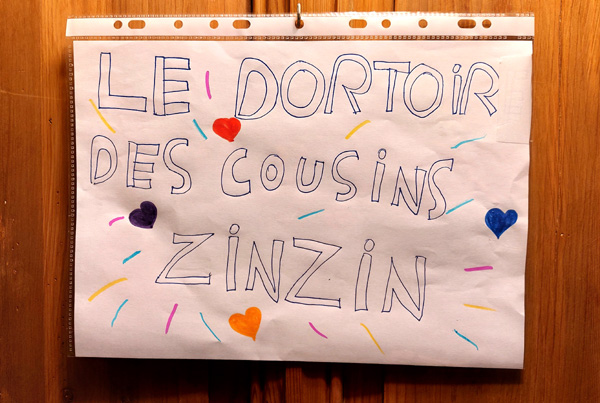 LE DORTOiR
DES COUSiNS
ZiNZiN